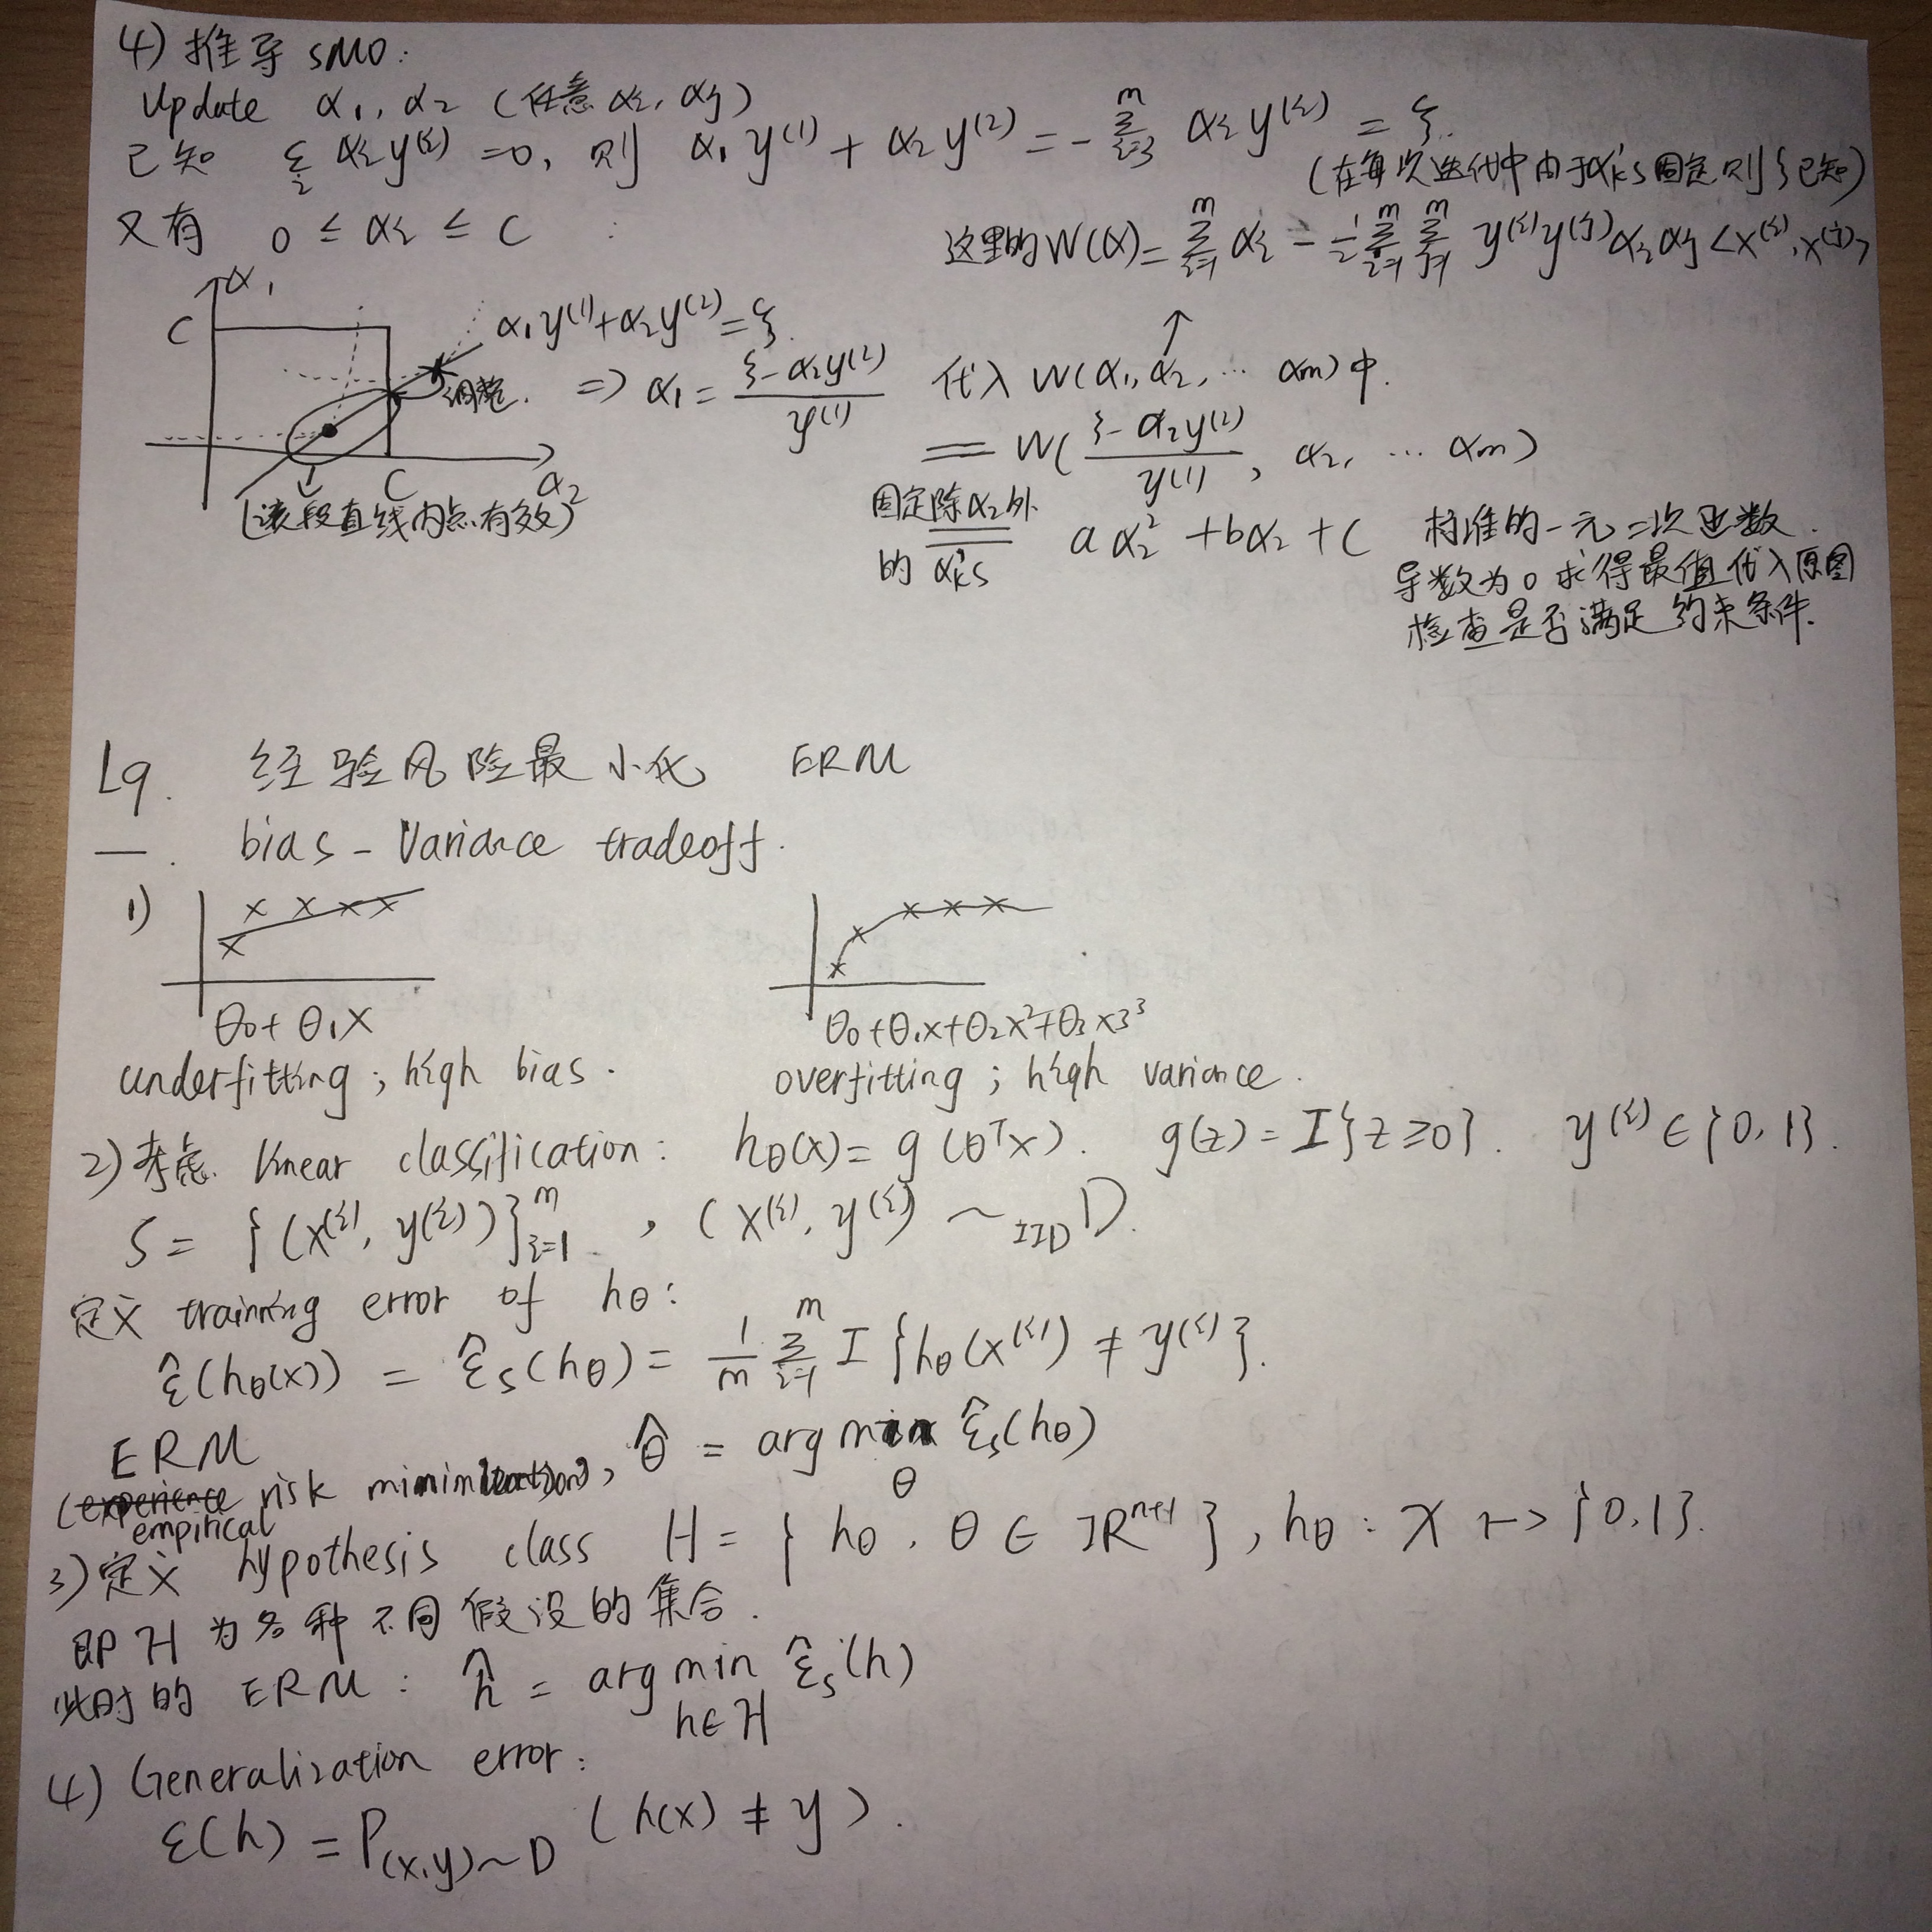 4) 推导 SMO:
Update α₁, α₂ (任意 αᵢ, αⱼ)
已知 Σᵢ αᵢy⁽ⁱ⁾ = 0, 则 α₁y⁽¹⁾ + α₂y⁽²⁾ = -Σᵢ₌₃ᵐ αᵢy⁽ⁱ⁾ = ξ.
(在每次迭代中由于αₖ's固定则ξ已知)
又有 0 ≤ αᵢ ≤ C :
这里的W(α) = Σᵢ₌₁ᵐ αᵢ - ½ Σᵢ₌₁ᵐ Σⱼ₌₁ᵐ y⁽ⁱ⁾y⁽ʲ⁾αᵢαⱼ<x⁽ⁱ⁾, x⁽ʲ⁾>
α₁
C
α₁y⁽¹⁾+α₂y⁽²⁾=ξ.
调整. => α₁ = (ξ-α₂y⁽²⁾)/y⁽¹⁾ 代入 W(α₁, α₂, ... αm) 中.
C α₂
(该段直线内点有效)
= W((ξ-α₂y⁽²⁾)/y⁽¹⁾, α₂, ... αm)
固定除α₂外
的 αₖ's = aα₂² + bα₂ + C 标准的一元二次函数.
导数为0求得最值代入原图
检查是否满足约束条件.
L9. 经验风险最小化 ERM
一. bias - Variance tradeoff.
1)
θ₀ + θ₁x θ₀+θ₁x+θ₂x²+θ₃x3³
underfitting ; high bias. overfitting ; high variance.
2) 考虑 linear classification: hθ(x) = g(θᵀx). g(z) = I{z≥0}. y⁽ⁱ⁾ ∈ {0,1}.
S = {(x⁽ⁱ⁾, y⁽ⁱ⁾)}ᵢ₌₁ᵐ , (x⁽ⁱ⁾, y⁽ⁱ⁾) ~ IID D.
定义 training error of hθ:
ε̂(hθ(x)) = ε̂ₛ(hθ) = 1/m Σᵢ₌₁ᵐ I{hθ(x⁽ⁱ⁾) ≠ y⁽ⁱ⁾}.
ERM
(experience risk minimization), θ̂ = arg min ε̂ₛ(hθ)
θ
empirical
3) 定义 hypothesis class H = {hθ, θ ∈ ℝⁿ⁺¹}, hθ : X ↦ {0,1}.
即 H 为各种不同假设的集合.
此时的 ERM : ĥ = arg min ε̂ₛ(h)
h∈H
4) Generalization error:
ε(h) = P(x,y)~D (h(x) ≠ y).